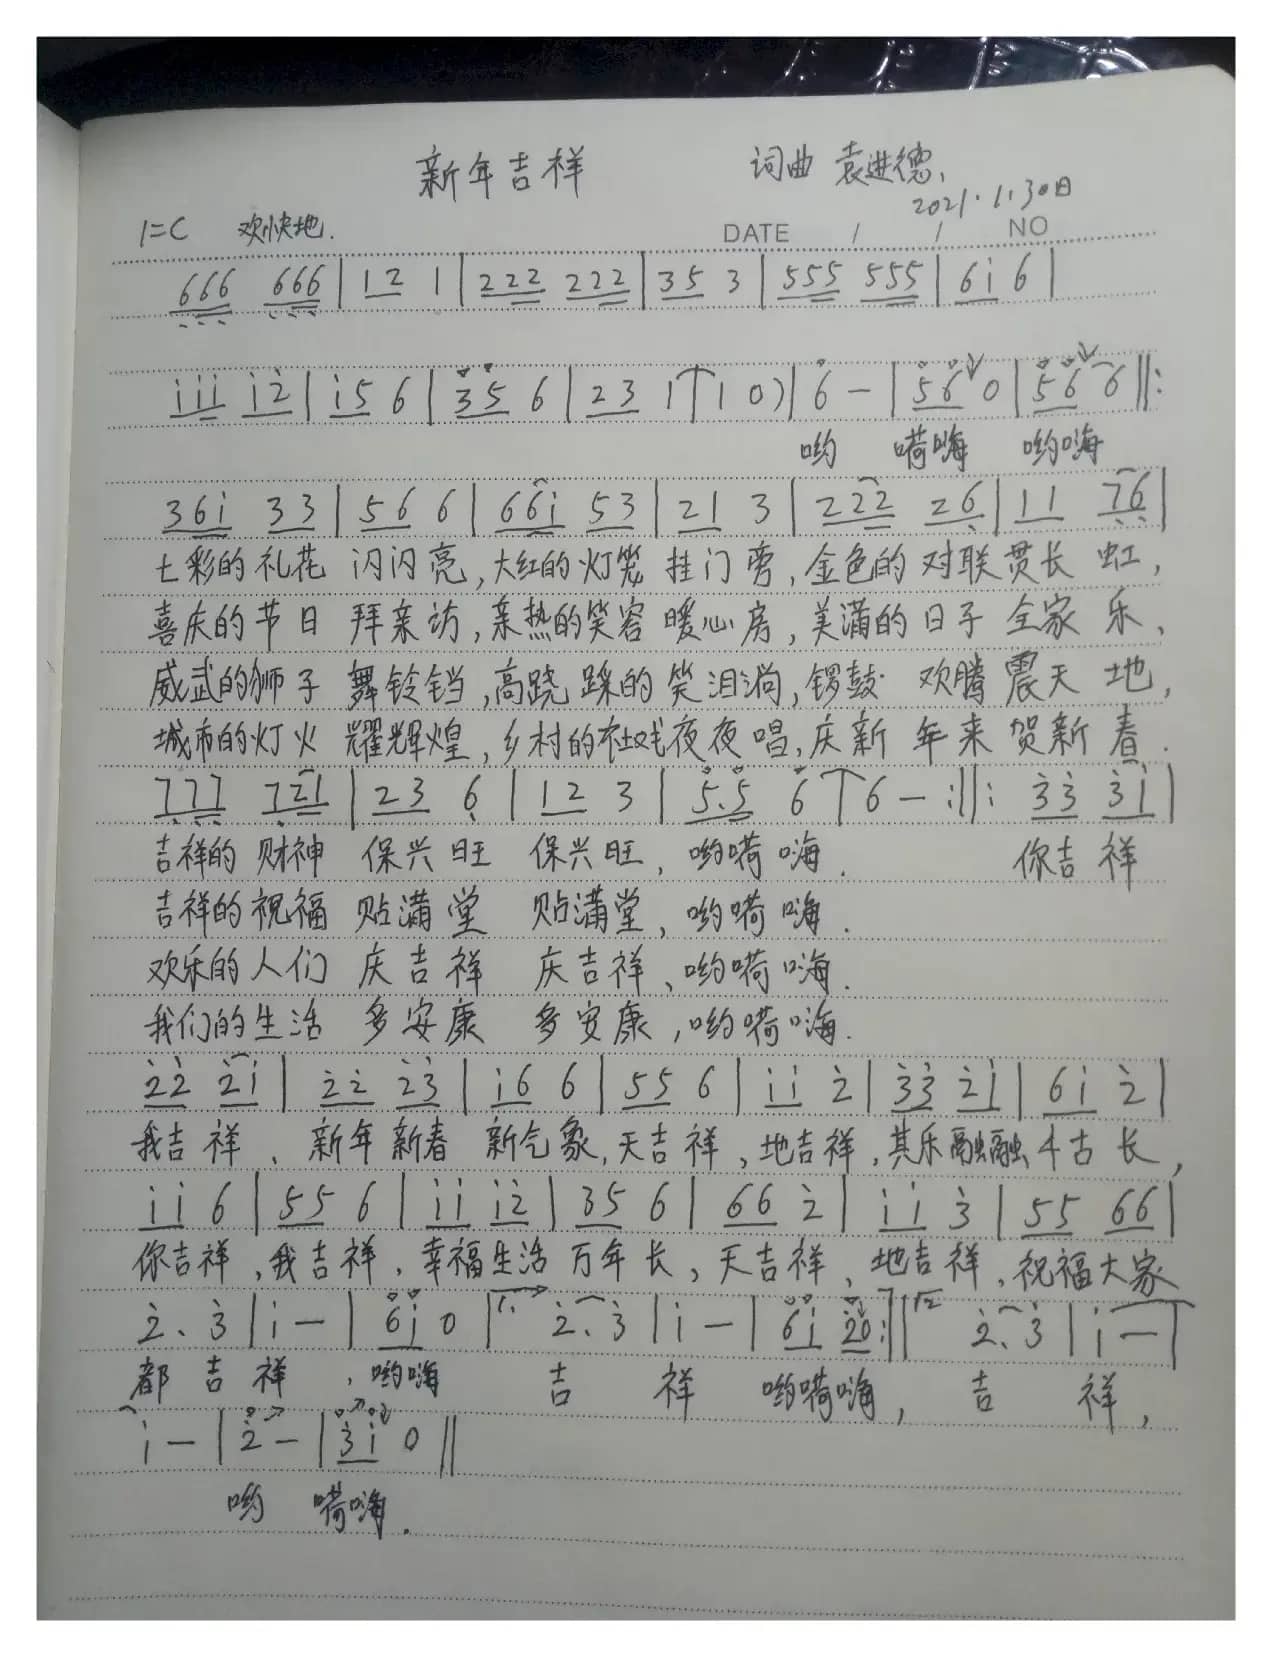 新年吉祥 词曲 袁进德、
2021.1.30日
1=C 欢快地.
DATE / / NO
666 666 | 12 1 | 222 222 | 35 3 | 555 555 | 6i 6 |
iii i2 | i5 6 | 35 6 | 23 1 | 1 0) | 6 — | 56 0 | 56 6 ‖:
哟 嗬嗨 哟嗨
36i 33 | 56 6 | 66i 53 | 21 3 | 222 26 | 11 76 |
七彩的礼花 闪闪亮,大红的灯笼 挂门旁,金色的对联贯长虹,
喜庆的节日 拜亲访,亲热的笑容 暖心房,美满的日子 全家乐、
威武的狮子 舞铃铛,高跷踩的笑泪淌,锣鼓欢腾震天地,
城市的灯火 耀辉煌,乡村的社戏夜夜唱,庆新年来贺新春.
777 721 | 23 6 | 12 3 | 5.5 6 | 6 — :‖: 33 3i |
吉祥的财神 保兴旺 保兴旺,哟嗬嗨. 你吉祥
吉祥的祝福 贴满堂 贴满堂,哟嗬嗨.
欢乐的人们 庆吉祥 庆吉祥、哟嗬嗨.
我们的生活 多安康 多安康,哟嗬嗨.
22 2i | 22 23 | i6 6 | 55 6 | ii 2 | 33 2i | 6i 2 |
我吉祥、新年新春 新气象,天吉祥,地吉祥,其乐融融千古长,
ii 6 | 55 6 | ii i2 | 35 6 | 66 2 | ii 3 | 55 66 |
你吉祥,我吉祥,幸福生活万年长,天吉祥、地吉祥、祝福大家
2、3 | i — | 6i 0 | 1. 2、3 | i — | 6i 20 :‖ 2 2、3 | i — |
都吉祥,哟嗨 吉祥 哟嗬嗨,吉祥,
i — | 2 — | 3i 0 ‖
哟 嗬嗨.